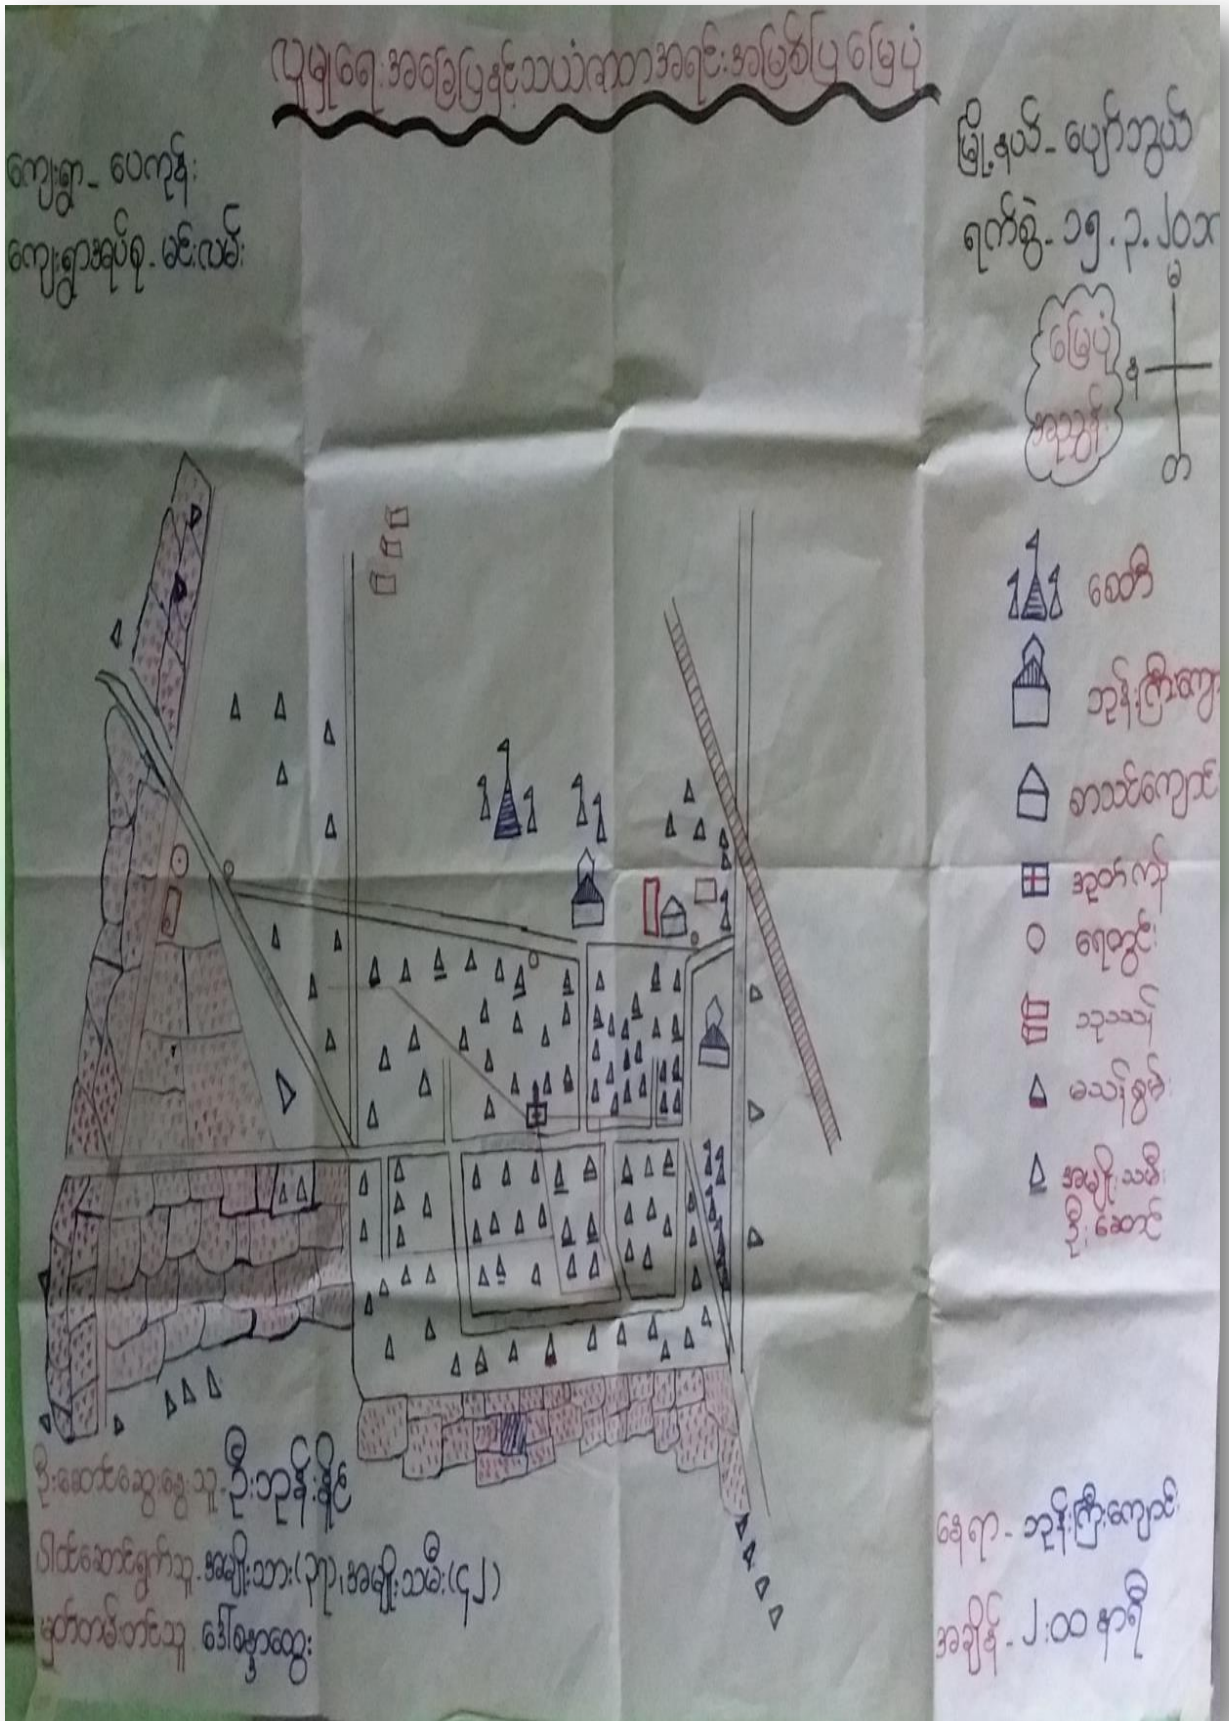 လူမှုရေးအခြေပြနှင့်သယံဇာတအရင်းအမြစ်ပြ မြေပုံ
ကျေးရွာ - ပေကုန်း
ကျေးရွာအုပ်စု - မင်းလမ်း
မြို့နယ် - ပျော်ဘွယ်
ရက်စွဲ - ၁၅.၃.၂၀၁
မြေပုံ
အညွှန်း
မ
န
တ
စေတီ
ဘုန်းကြီးကျော
စာသင်ကျောင်း
အုတ်ကန်
ရေတွင်း
သုဿန်
မသန်စွမ်း
အမျိုးသမီး
ဦးဆောင်
ဦးဆောင်ဆွေးနွေးသူ - ဦးဘုန်းနိုင်
ပါဝင်ဆောင်ရွက်သူ - အမျိုးသား(၃၅)၊ အမျိုးသမီး(၄၂)
မှတ်တမ်းတင်သူ - ဒေါ်စန္ဒာထွေး
နေရာ - ဘုန်းကြီးကျောင်း
အချိန် - ၂:၀၀ နာရီ